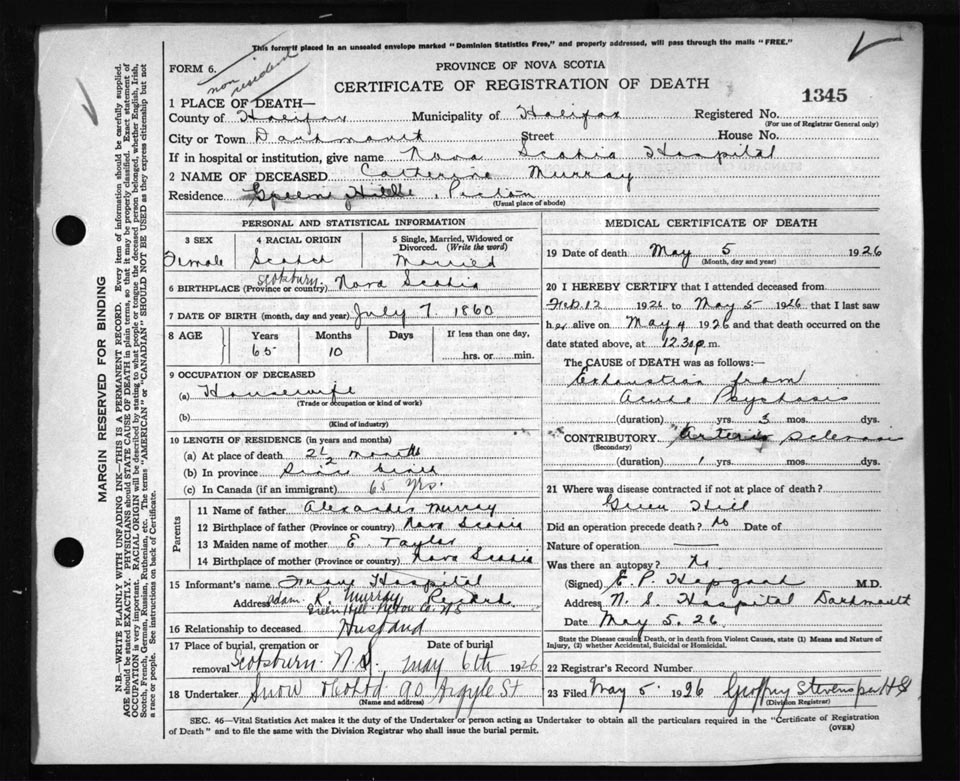 This form if placed in an unsealed envelope marked "Dominion Statistics Free," and properly addressed, will pass through the mails "FREE."
FORM 6.
non resident
PROVINCE OF NOVA SCOTIA
CERTIFICATE OF REGISTRATION OF DEATH
1345
1 PLACE OF DEATH—
County of Halifax Municipality of Halifax Registered No.
(For use of Registrar General only)
City or Town Dartmouth Street House No.
If in hospital or institution, give name Nova Scotia Hospital
2 NAME OF DECEASED Catherine Murray
Residence Green Hill, Pictou
(Usual place of abode)
PERSONAL AND STATISTICAL INFORMATION
3 SEX 4 RACIAL ORIGIN 5 Single, Married, Widowed or Divorced. (Write the word)
Female Scotch Married
6 BIRTHPLACE (Province or country) Scotsburn Nova Scotia
7 DATE OF BIRTH (month, day and year) July 7. 1860
8 AGE Years Months Days If less than one day,
65 10 hrs. or min.
9 OCCUPATION OF DECEASED
(a) Housewife
(Trade or occupation or kind of work)
(b)
(Kind of industry)
10 LENGTH OF RESIDENCE (in years and months)
(a) At place of death 2½ months
(b) In province
(c) In Canada (if an immigrant) 65 yrs.
Parents
11 Name of father Alexander Murray
12 Birthplace of father (Province or country) Nova Scotia
13 Maiden name of mother E. Taylor
14 Birthplace of mother (Province or country) Nova Scotia
15 Informant's name Hospital
Address Adam R. Murray Record
Green Hill Pictou Co. NS
16 Relationship to deceased Husband
17 Place of burial, cremation or removal Scotsburn N.S. Date of burial May 6th 1926
18 Undertaker Snow & Co Ltd 90 Argyle St
(Name and address)
MEDICAL CERTIFICATE OF DEATH
19 Date of death May 5 1926
(Month, day and year)
20 I HEREBY CERTIFY that I attended deceased from
Feb. 12 1926 to May 5 1926 that I last saw
her alive on May 4 1926 and that death occurred on
date stated above, at 12.30 p.m.
The CAUSE OF DEATH was as follows:—
Exhaustion from
Acute Psychosis
(duration) yrs. 3 mos. dys.
CONTRIBUTORY Arterio Sclerosis
(Secondary)
(duration) 1 yrs. mos. dys.
21 Where was disease contracted if not at place of death?
Green Hill
Did an operation precede death? No Date of
Nature of operation —
Was there an autopsy? No.
(Signed) E. P. M.D.
Address N. S. Hospital Dartmouth
Date May 5. 26.
State the Disease causing Death, or in death from Violent Causes, state (1) Means and Nature of Injury, (2) whether Accidental, Suicidal or Homicidal.
22 Registrar's Record Number
23 Filed May 5 1926 Geoffrey Stevens per HS
(Division Registrar)
SEC. 46—Vital Statistics Act makes it the duty of the Undertaker or person acting as Undertaker to obtain all the particulars required in the "Certificate of Registration
of Death" and to file the same with the Division Registrar who shall issue the burial permit.
(OVER)
MARGIN RESERVED FOR BINDING
N.B.—WRITE PLAINLY, WITH UNFADING INK—THIS IS A PERMANENT RECORD. Every item of information should be carefully supplied.
AGE should be stated EXACTLY. PHYSICIANS should STATE CAUSE OF DEATH in plain terms, so that it may be properly classified. Exact statement of
OCCUPATION is very important. RACIAL ORIGIN will be described by stating to what people or tongue the deceased person belonged, whether English, Irish,
Scotch, French, German, Russian, Ruthenian, etc. The terms "AMERICAN" or "CANADIAN" SHOULD NOT BE USED as they express citizenship but not
a race or people. See instructions on back of Certificate.